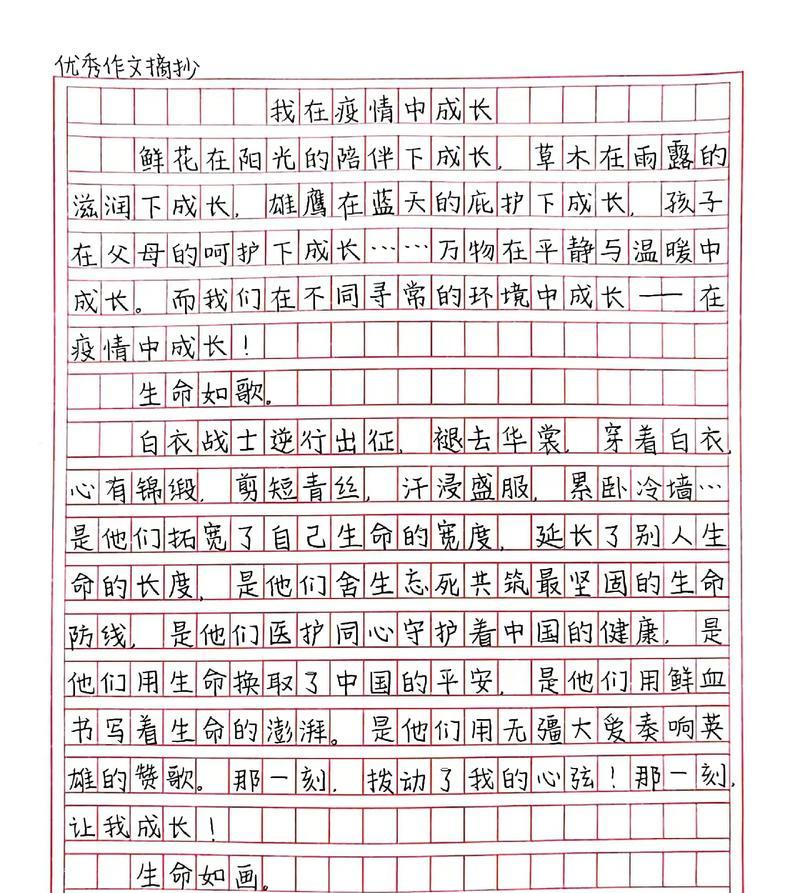 优秀作文摘抄
我在疫情中成长
鲜花在阳光的陪伴下成长，草木在雨露的
滋润下成长，雄鹰在蓝天的庇护下成长，孩子
在父母的呵护下成长……万物在平静与温暖中
成长。而我们在不同寻常的环境中成长——在
疫情中成长！
生命如歌。
白衣战士逆行出征，褪去华裳，穿着白衣，
心有锦缎，剪短青丝，汗浸盛服，累卧冷墙…
是他们拓宽了自己生命的宽度，延长了别人生
命的长度，是他们舍生忘死共筑最坚固的生命
防线，是他们医护同心守护着中国的健康，是
他们用生命换取了中国的平安，是他们用鲜血
书写着生命的澎湃。是他们用无疆大爱奏响英
雄的赞歌。那一刻，拨动了我的心弦！那一刻，
让我成长！
生命如画。